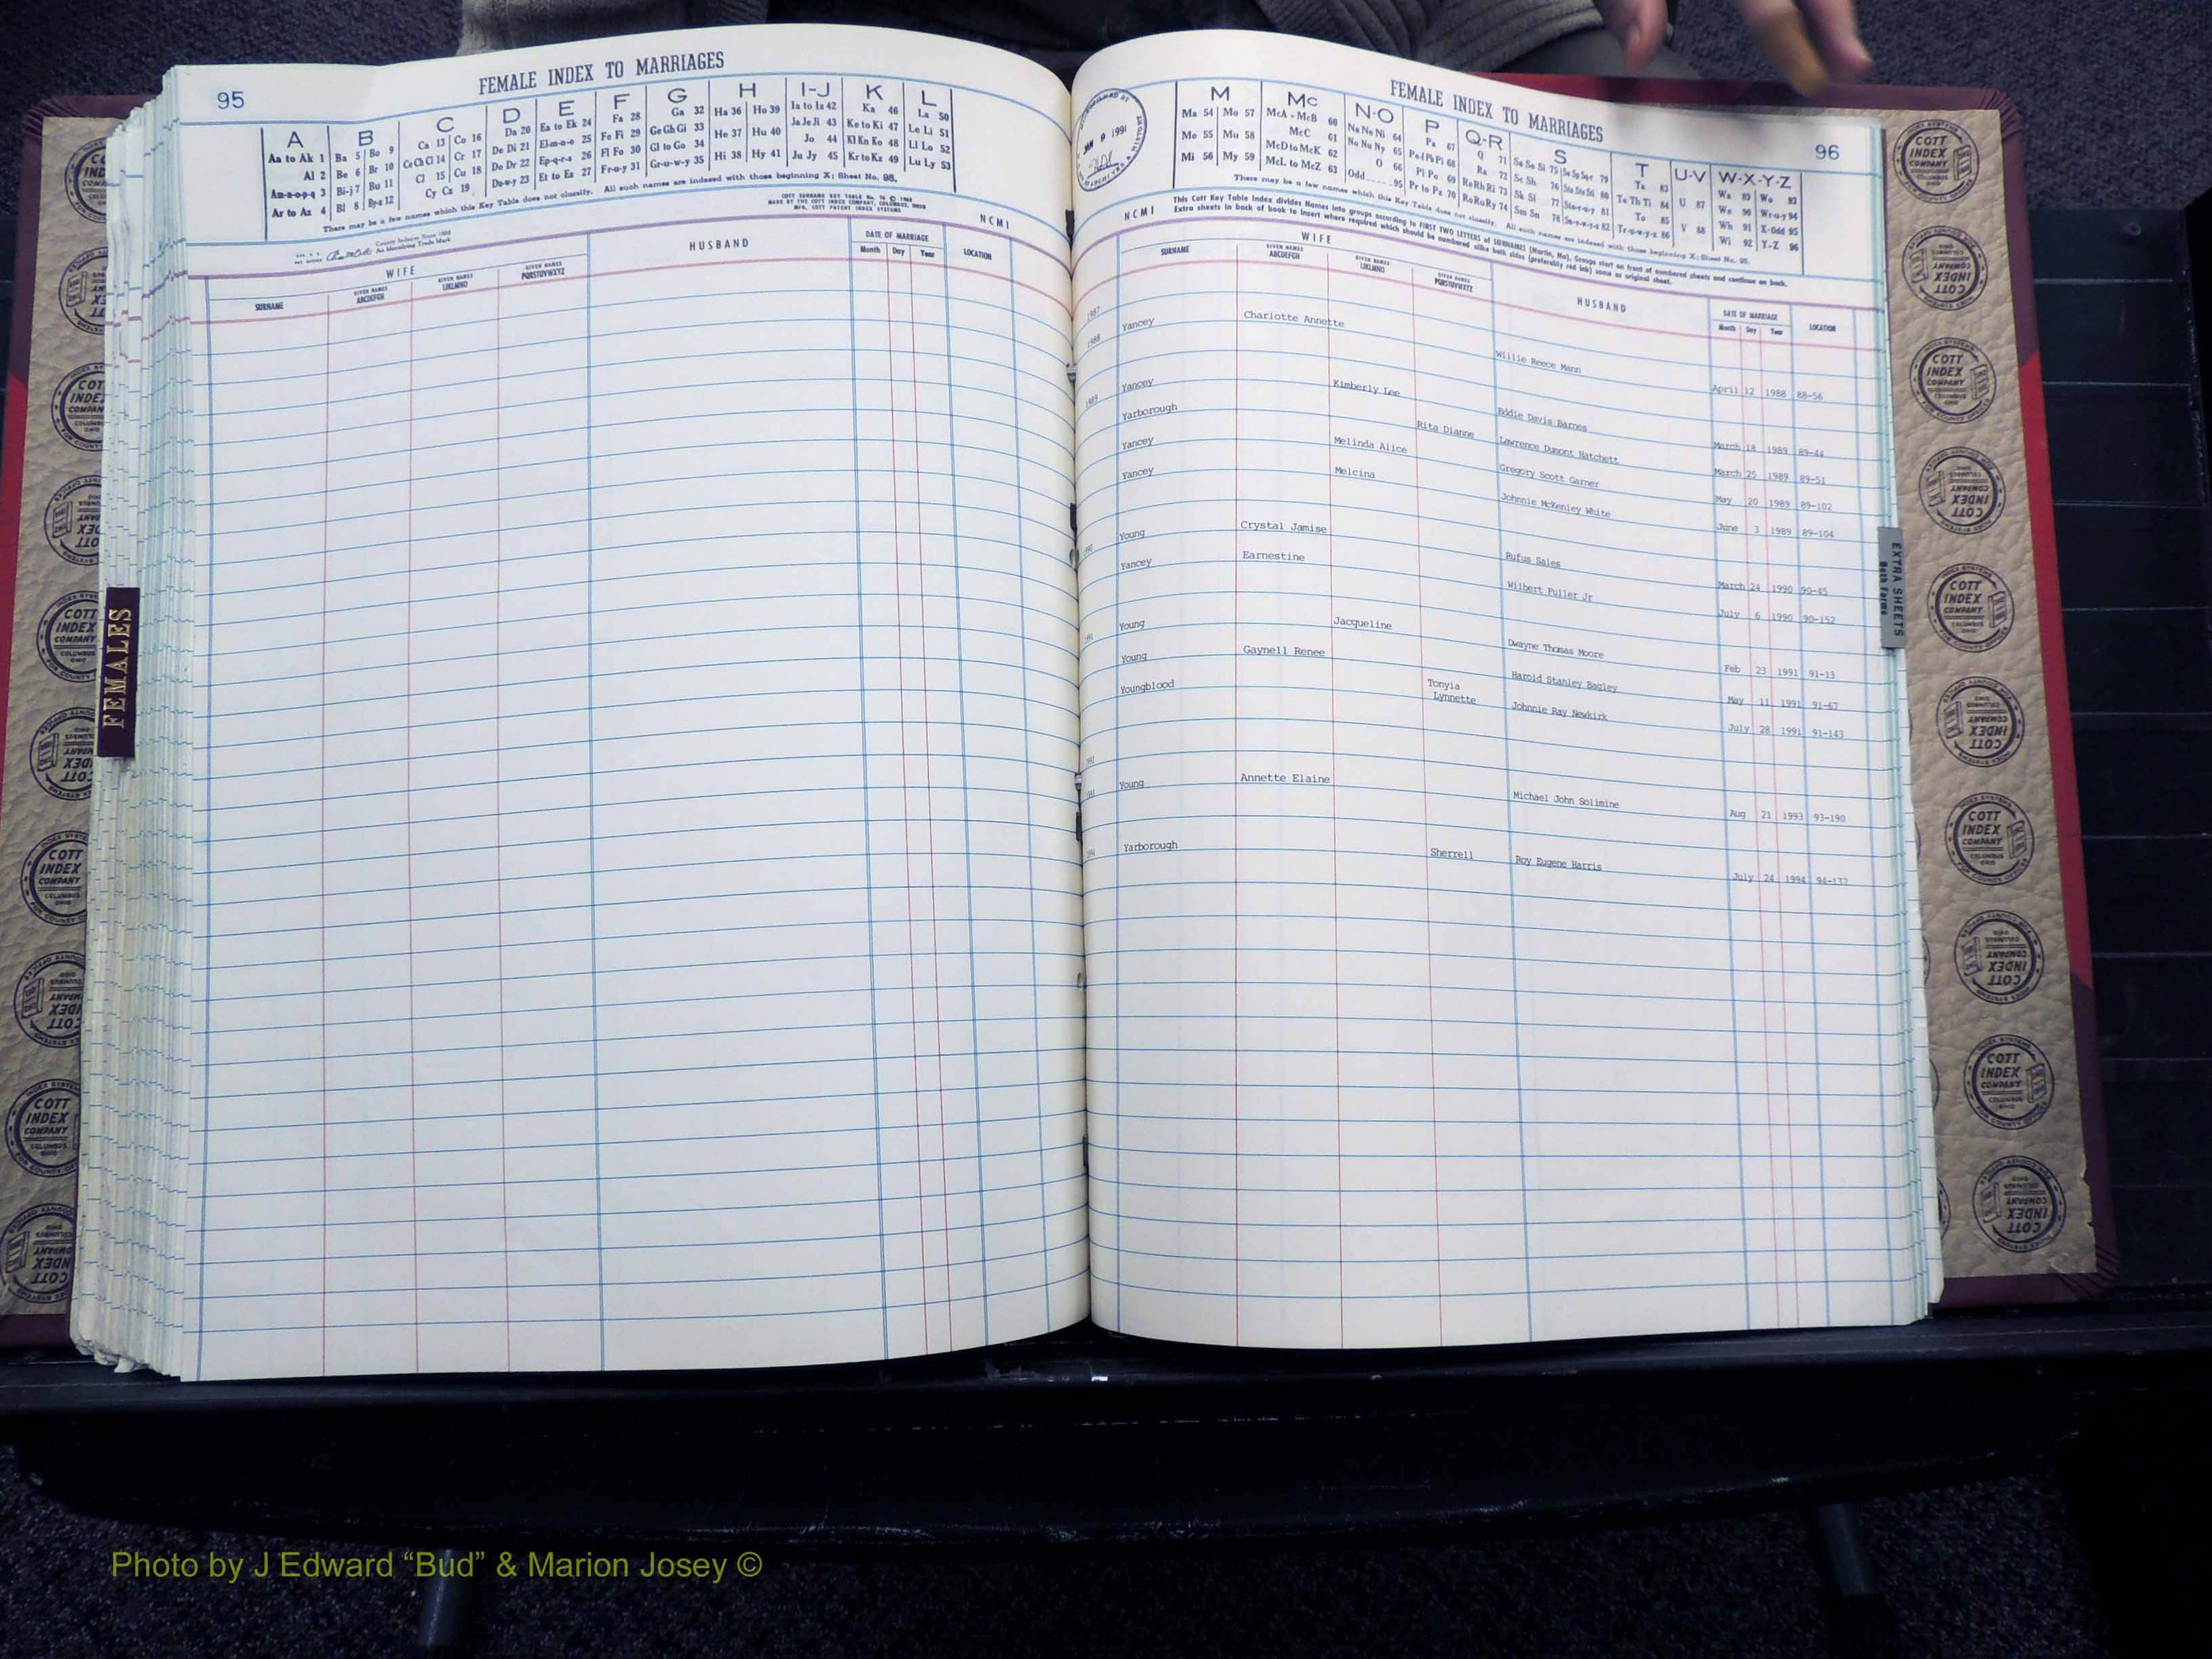 95
FEMALE INDEX TO MARRIAGES
A B C D E F G H I-J K L
Aa to Ak 1 Ba 5 Bo 9 Ca 13 Co 16 Da 20 Ea to Ek 24 Fa 28 Ga 32 Ha 36 Ho 39 Ia to Iz 42 Ka 46 La 50
Al 2 Be 6 Br 10 Ce Ch Ci 14 Cr 17 De Di 21 El-m-n-o 25 Fe Fi 29 Ge Gh Gi 33 He 37 Hu 40 Ja Je Ji 43 Ke to Ki 47 Le Li 51
Am-n-o-p-q 3 Bi-j 7 Bu 11 Cl 15 Cu 18 Do Dr 22 Ep-q-r-s 26 Fl Fo 30 Gl to Go 34 Hi 38 Hy 41 Jo 44 Kl Kn Ko 48 Ll Lo 52
Ar to Az 4 Bl 8 By-z 12 Cy Cz 19 Du-w-y 23 Et to Ez 27 Fr-u-y 31 Gr-u-w-y 35 Ju Jy 45 Kr to Kz 49 Lu Ly 53
There may be a few names which this Key Table does not classify. All such names are indexed with those beginning X; Sheet No. 95.
NCMI
WIFE
HUSBAND
DATE OF MARRIAGE
LOCATION
SURNAME
GIVEN NAMES ABCDEFGH
GIVEN NAMES IJKLMNO
GIVEN NAMES PQRSTUVWXYZ
Month Day Year
FEMALES
FEMALE INDEX TO MARRIAGES
96
M Mc N-O P Q-R S T U-V W-X-Y-Z
Ma 54 Mo 57 McA - McB 60 Na Ne Ni 64 Pa 67 Q 71 Ta 83 Wa 89 Wo 93
Me 55 Mu 58 McC 61 No Nu Ny 65 Ra 72 Sc Sh 76 Te Th Ti 84 U 87 We 90 Wr-u-y 94
Mi 56 My 59 McD to McK 62 O 66 Pi Po 69 Ra Rh Ri 73 Sk Sl 77 To 85 Wh 91 X-Odd 95
McL to McZ 63 Odd 95 Pr to Pz 70 Ro Ru Ry 74 Sm Sn 78 Tr-u-w-y-z 86 V 88 Wi 92 Y-Z 96
There may be a few names which this Key Table does not classify. All such names are indexed with those beginning X; Sheet No. 95.
This Cott Key Table Index divides Names into groups according to FIRST TWO LETTERS of SURNAMES (Martin, Ma). Groups start on front of numbered sheets and continue on back.
Extra sheets in back of book to insert where required which should be numbered on both sides (preferably red ink) same as original sheet.
NCMI
WIFE
HUSBAND
DATE OF MARRIAGE
LOCATION
SURNAME
GIVEN NAMES ABCDEFGH
GIVEN NAMES IJKLMNO
GIVEN NAMES PQRSTUVWXYZ
Month Day Year
1987
1988 Yancey Charlotte Annette Willie Reece Mann April 12 1988 88-56
1989 Yancey Kimberly Lee Eddie Davis Barnes March 18 1989 89-44
Yarborough Rita Dianne Lawrence Dumont Hatchett March 25 1989 89-51
Yancey Melinda Alice Gregory Scott Garner May 20 1989 89-102
Yancey Melcina Johnnie McKenley White June 3 1989 89-104
1990 Young Crystal Jamise Rufus Sales March 24 1990 90-45
Yancey Earnestine Wilbert Fuller Jr July 6 1990 90-152
1991 Young Jacqueline Dwayne Thomas Moore Feb 23 1991 91-13
Young Gaynell Renee Harold Stanley Bagley May 11 1991 91-67
Youngblood Tonyia Lynnette Johnnie Ray Newkirk July 28 1991 91-143
1992
1993 Young Annette Elaine Michael John Solimine Aug 21 1993 93-190
1994 Yarborough Sherrell Roy Eugene Harris July 24 1994 94-137
EXTRA SHEETS
COTT INDEX COMPANY
COLUMBUS OHIO
Photo by J Edward “Bud” & Marion Josey ©